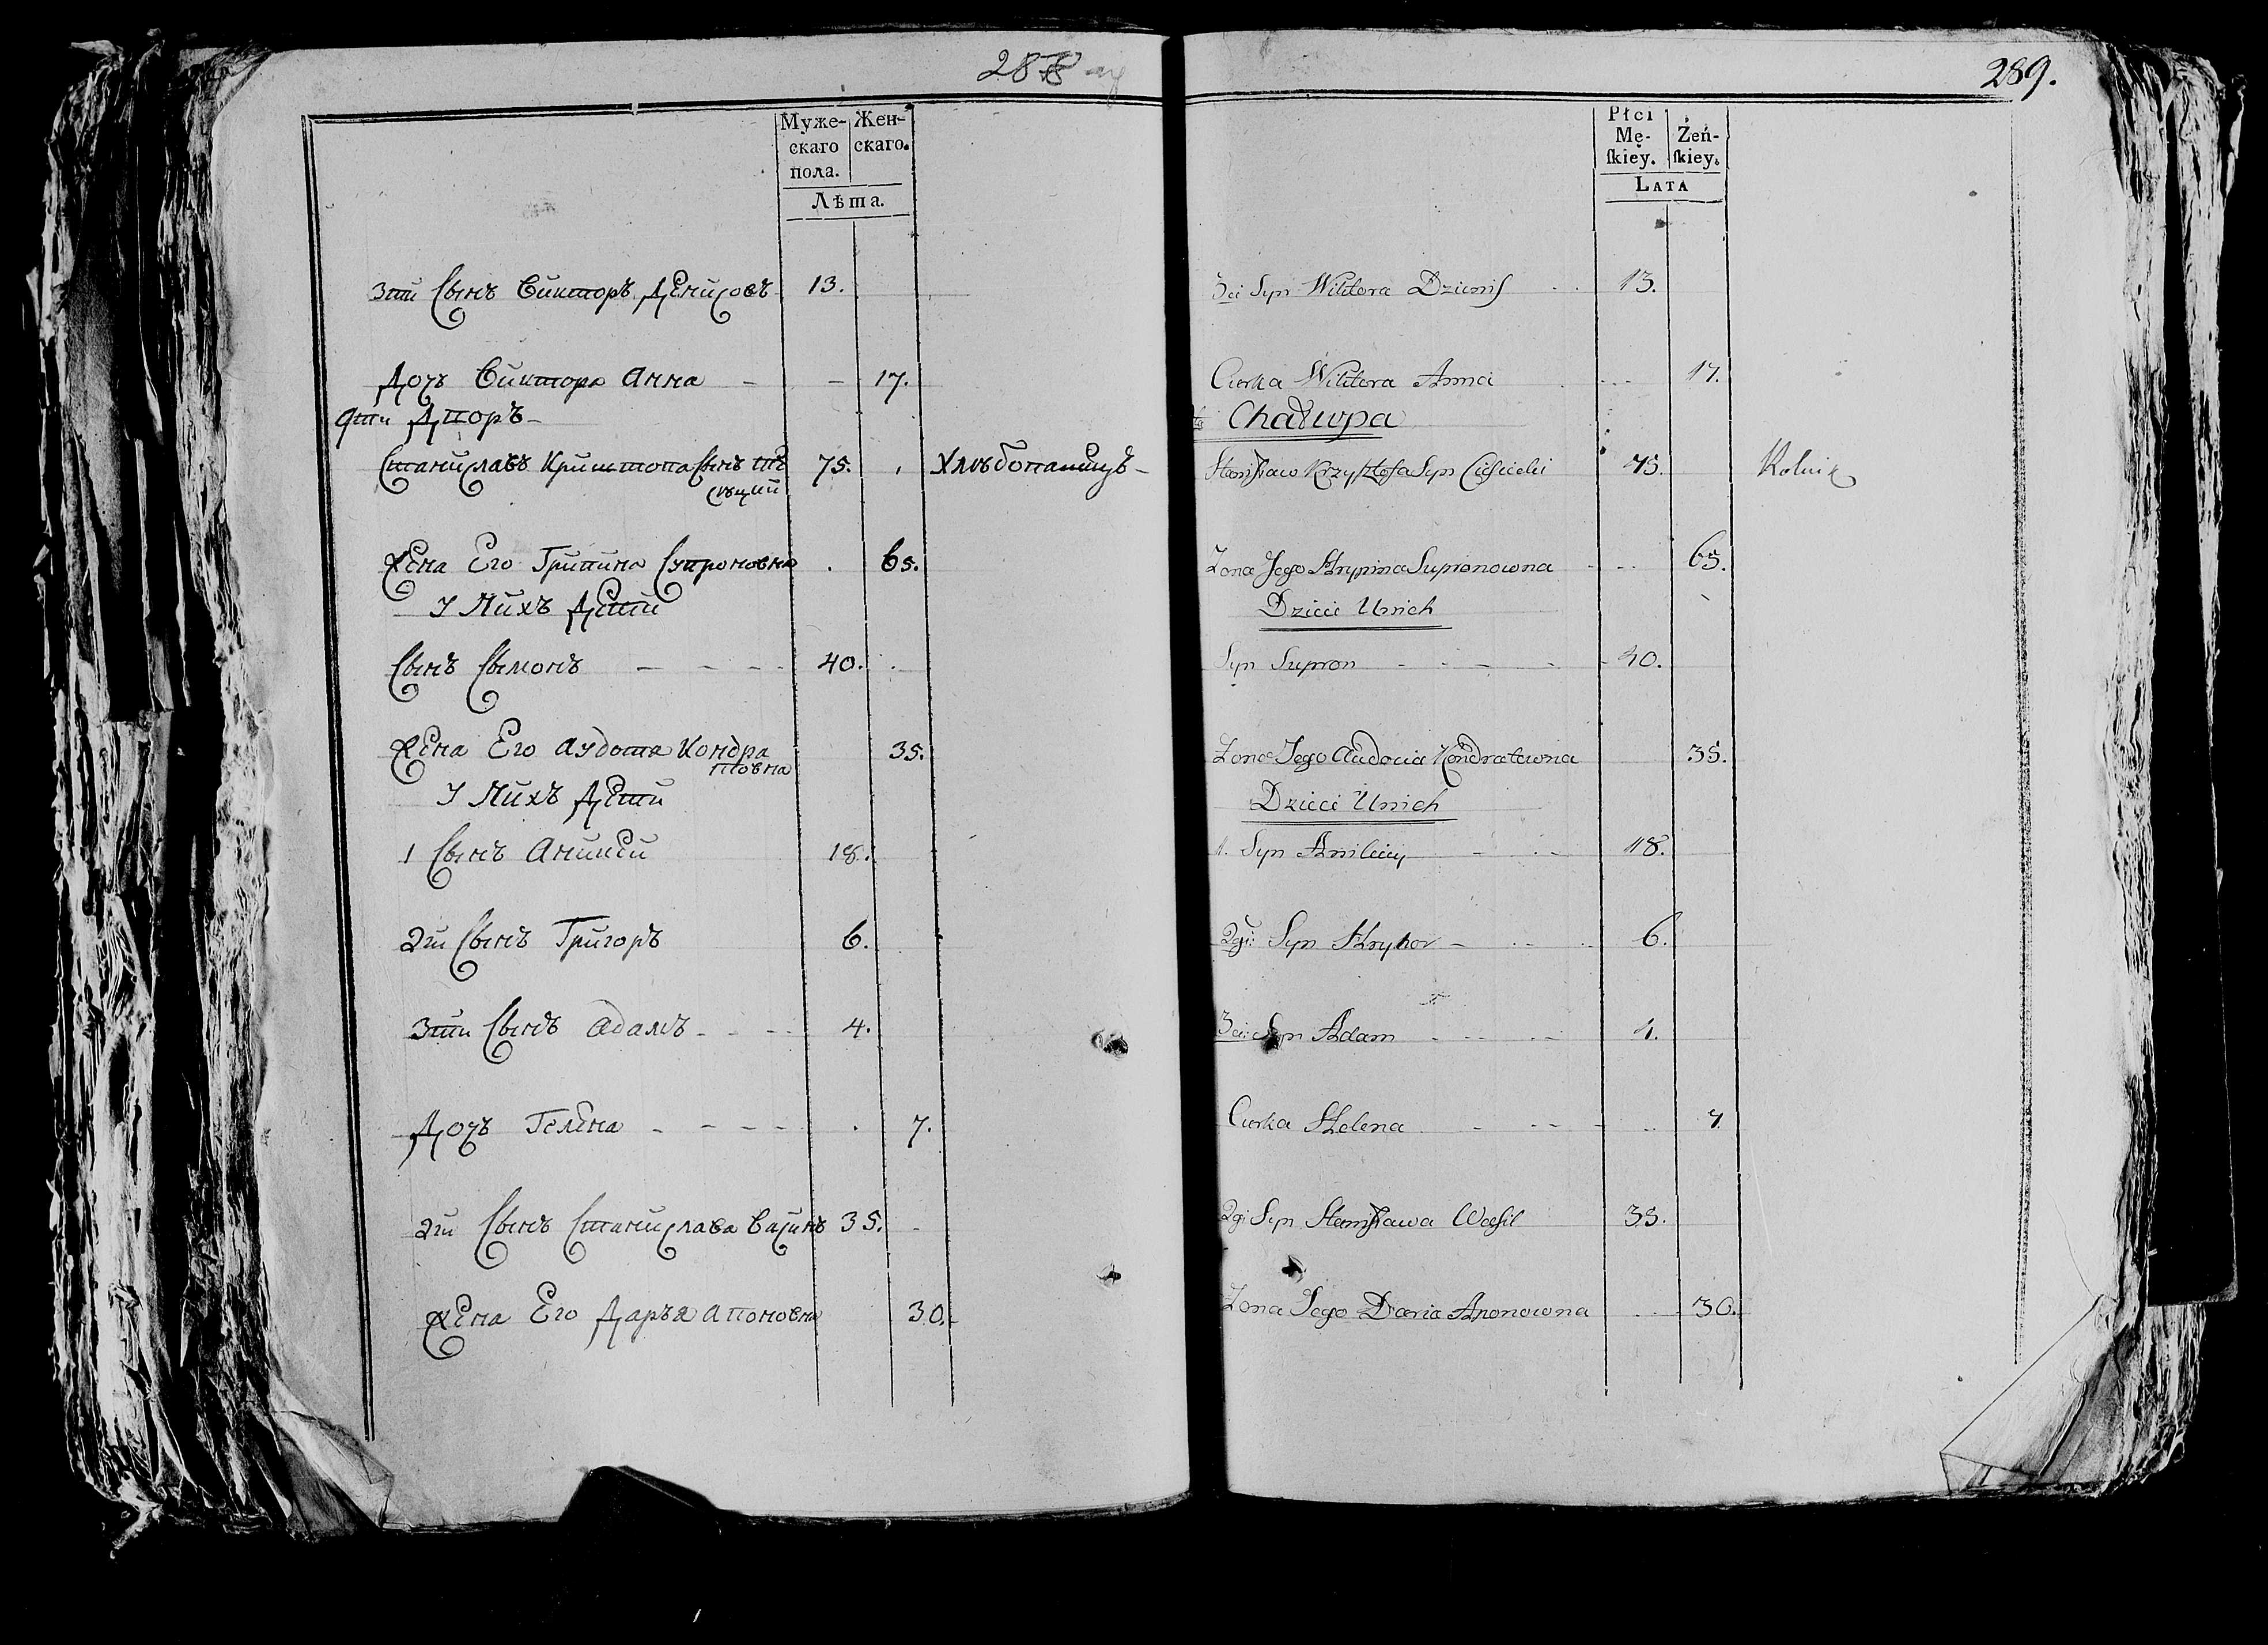 288
Муже-
скаго
пола.
Жен-
скаго.
Лѣта.
3тй Сынъ Викторъ Денисовъ 13.
Дочъ Виктора Анна - - 17.
9тй Дворъ -
Станиславъ Криштопа Сынъ 75. Хлѣбопашецъ -
Жена Его Грипина Супроновна . 65.
У Нихъ Дети
Сынъ Сымонъ - - - - 40.
Жена Его Аудотя Кондра 35.
товна
У Нихъ Дети
1 Сынъ Аникей 18.
2й Сынъ Григоръ 6.
3тй Сынъ Адамъ - - - 4.
Дочъ Гелена - - - - . 7.
2й Сынъ Станислава Василь 35.
Жена Его Даръя Апоновна 30.
289.
Płci
Mę-
ſkiey.
Żeń-
ſkiey.
LATA
3ci Syn Wiktora Dzienis 13.
Curka Wiktora Anna 17.
Chałupa
Stanisław Krzysztofa Syn 75. Rolnik
Zona Jego Hrypina Supronowna 65.
Dzieci Unich
Syn Supron 40.
Zona Jego Audocia Kondratowna 35.
Dzieci Unich
1. Syn Anikiey 18.
2gi Syn Hryhor 6.
3ci Syn Adam 4.
Curka Helena 7.
2gi Syn Stanisława Wasil 35.
Zona Jego Daria Aponowna 30.